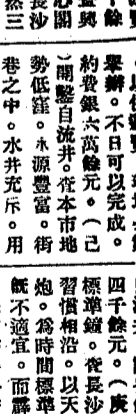 十餘
益興
心閣
長沙
然三
舉辦。不日可以完成。
約費銀六萬餘元。(己
)開鑿自流井。查本市地
勢低窪。水源豐富。街
巷之中。水井充斥。用
四千餘元。(庚
標準鐘。查長沙
習慣相沿。以天
炮。爲時間標準
旣不適宜。而霹